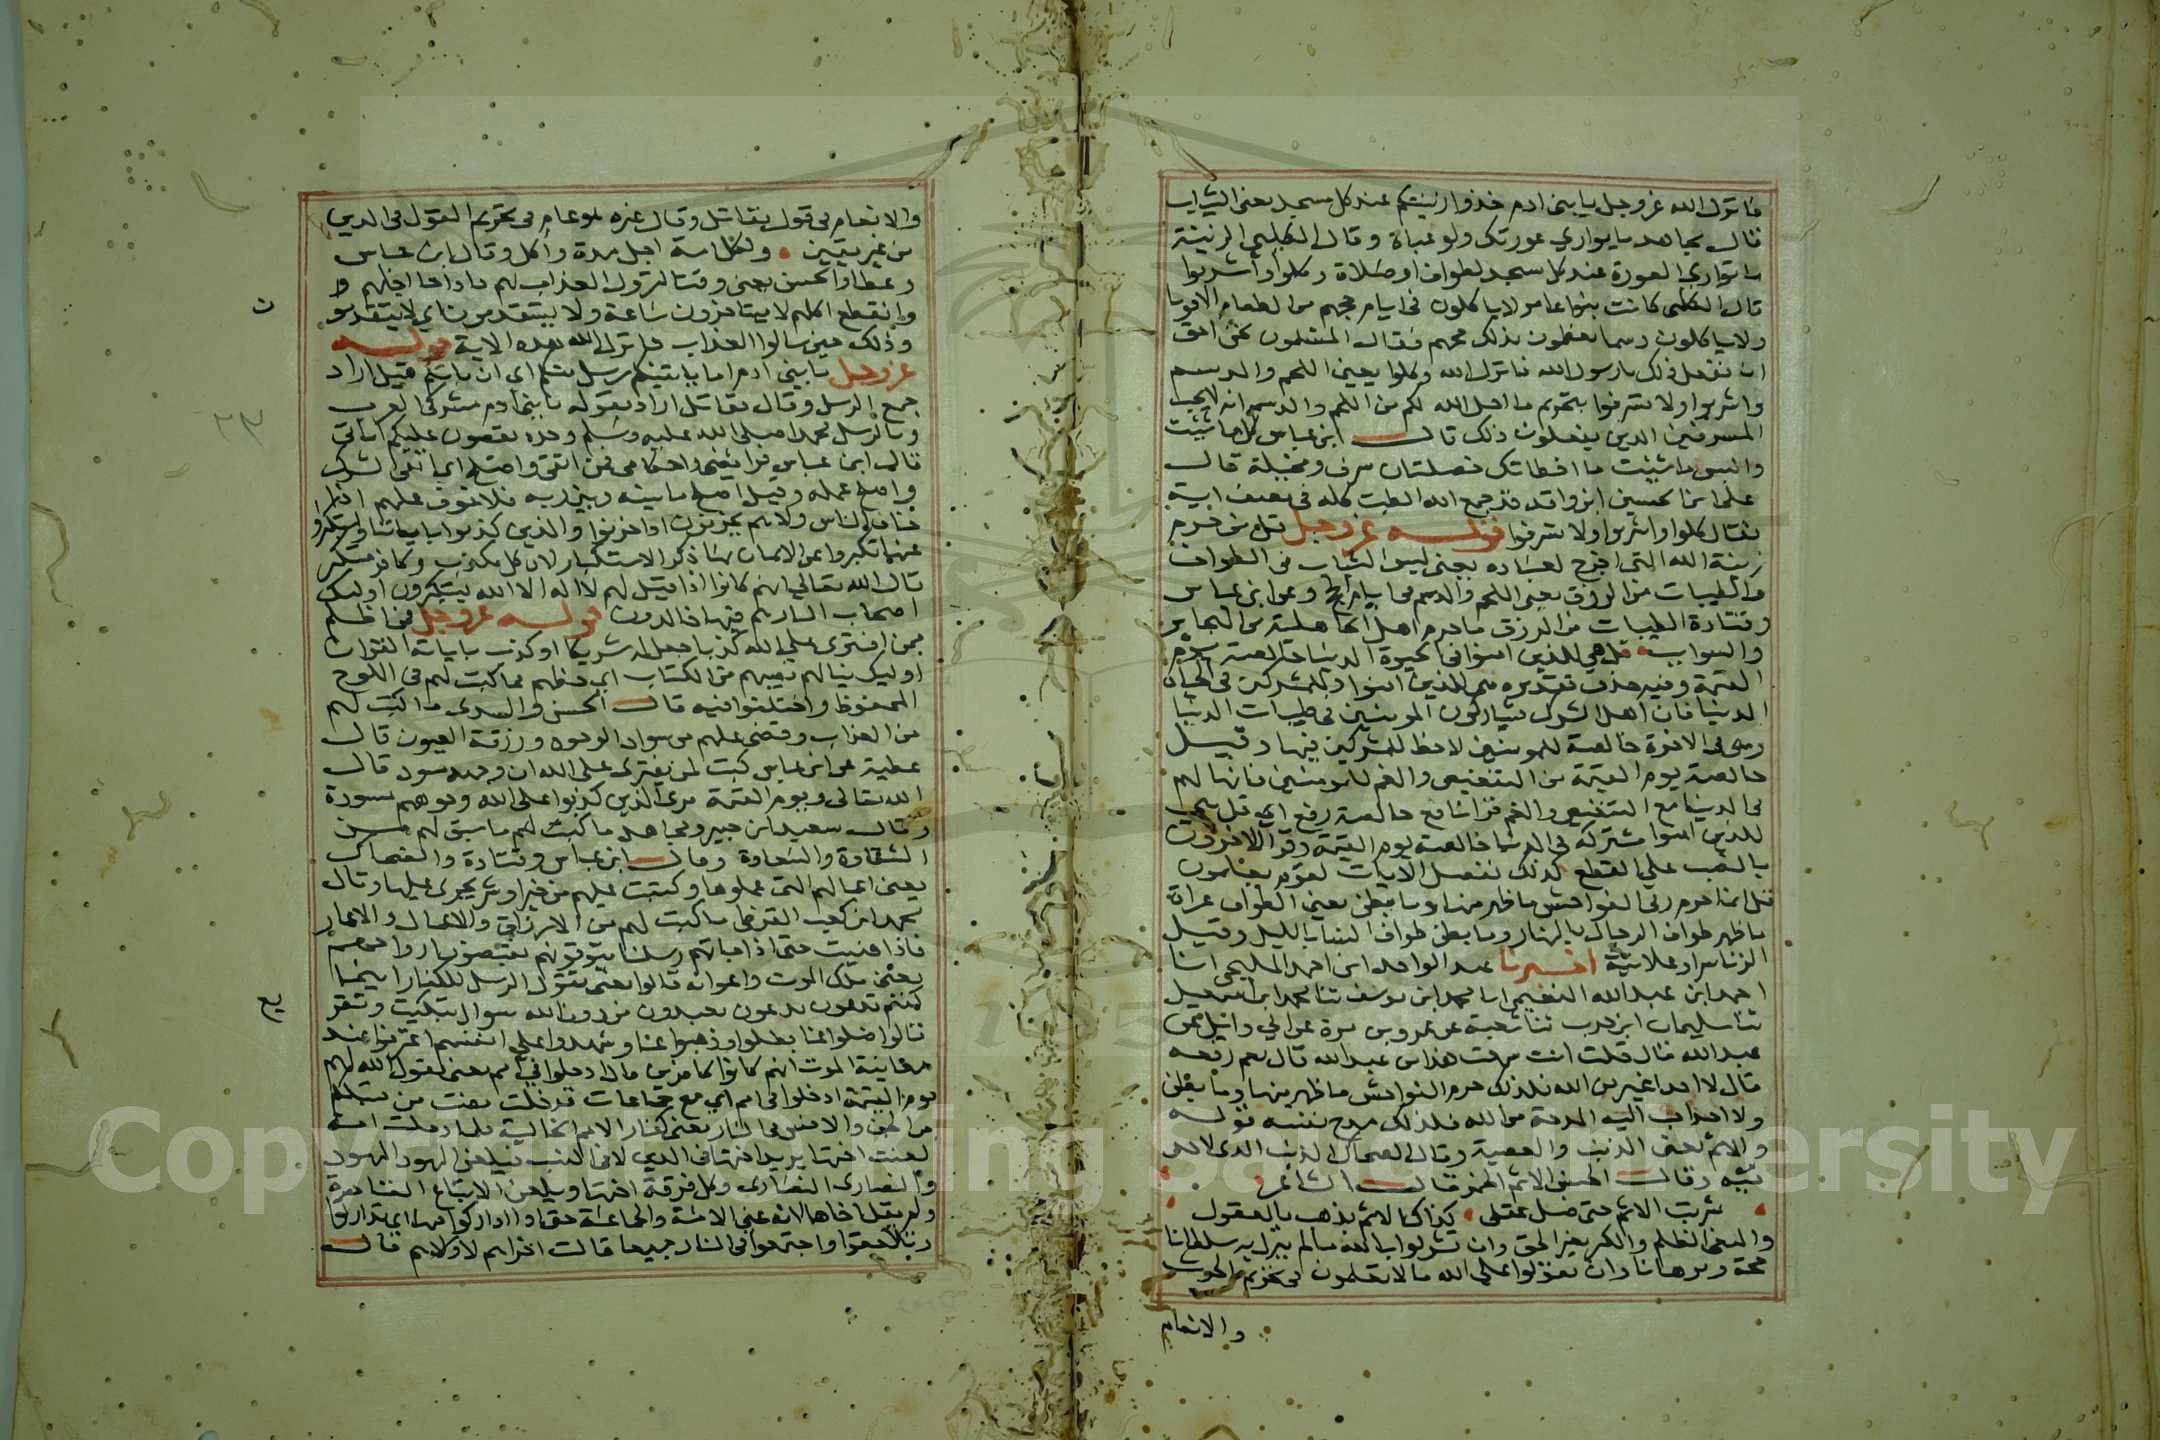 فانزل الله عز وجل يا بني ادم خذوا زينتكم عند كل مسجد يعني الثياب
قال مجاهد ما يواري عورتك ولو عباة وقال الكلبي الزينة
ما تواري العورة عند كل مسجد لطواف او صلاة وكلوا واشربوا
قال الكلبي كانت بنوا عامر لا ياكلون في ايام حجهم من الطعام الا قوتا
ولا ياكلون دسما يعظمون بذلك حجهم فقال المسلمون نحن احق
ان نفعل ذلك يا رسول الله فانزل الله وكلوا يعني اللحم والدسم
واشربوا ولا تسرفوا بتحريم ما احل الله لكم من اللحم والدسم انه لا يحب
المسرفين الذين يفعلون ذلك قال ابن عباس كل ما شيت
والبس ما شيت ما اخطاتك خصلتان سرف ومخيلة قال
علي ابن الحسين ابن واقد قد جمع الله الطب كله في نصف اية
فقال كلوا واشربوا ولا تسرفوا قوله عز وجل قل من حرم
زينة الله التي اخرج لعباده يعني لبس الثياب في الطواف
والطيبات من الرزق يعني اللحم والدسم في ايام الحج وعن ابن عباس
وقتادة الطيبات من الرزق ما حرم اهل الجاهلية من البحاير
والسوايب قل هي للذين امنوا في الحيوة الدنيا خالصة يوم
القيمة وفيه حذف تقديره هي للذين امنوا وللمشركين في الحياة
الدنيا فان اهل الشرك يشاركون المومنين في طيبات الدنيا
وهي في الاخرة خالصة للمومنين لا حظ للمشركين فيها وقيل
خالصة يوم القيمة من التنغيص والغم للمومنين فانها لهم
في الدنيا مع التنغيص والغم قرا نافع خالصة رفع اي قل هي
للذين امنوا مشتركة في الدنيا خالصة يوم القيمة وقرا الاخرون
بالنصب علي القطع كذلك نفصل الايات لقوم يعلمون
قل انما حرم ربي الفواحش ما ظهر منها وما بطن يعني الطواف عراة
ما ظهر طواف الرجال بالنهار وما بطن طواف النسا بالليل وقيل
الزنا سرا وعلانية اخبرنا عبد الواحد ابن احمد المليحي انا
احمد ابن عبد الله النعيمي انا محمد ابن يوسف ثنا محمد ابن اسمعيل
ثنا سليمان ابن حرب ثنا شعبة عن عمرو بن مرة عن ابي وائل عن
عبد الله قال قلت انت سمعت هذا من عبد الله قال نعم رفعه
قال لا احد اغير من الله فلذلك حرم الفواحش ما ظهر منها وما بطن
ولا احد احب اليه المدحة من الله فلذلك مدح نفسه قوله
والاثم يعني الذنب والمعصية وقال الضحاك الذنب الذي لا حد
فيه وقال الحسن الاثم الخمر قال الشاعر
شربت الاثم حتى ضل عقلي كذاك الاثم يذهب بالعقول
والبغي الظلم والكبر بغير الحق وان تشركوا بالله ما لم ينزل به سلطانا
حجة وبرهانا وان تقولوا علي الله ما لا تعلمون في تحريم الحرث
والانعام
والانعام في قول مقاتل وقال غيره هو عام في تحريم القول في الدين
من غير يقين ولكل امة اجل مدة واكل وقال ابن عباس
وعطا والحسن يعني وقتا لنزول العذاب لهم فاذا جا اجلهم
وانقطع اكلهم لا يستاخرون ساعة ولا يستقدمون اي لا يتقدمو
ن
وذلك حين سالوا العذاب فانزل الله هذه الاية قوله
عز وجل يا بني ادم اما ياتينكم رسل منكم اي ان ياتكم قيل اراد
جمع الرسل وقال مقاتل اراد بقوله يا بني ادم مشركي العرب
وبالرسل محمدا صلى الله عليه وسلم وحده يقصون عليكم اياتي
قال ابن عباس فرايضي واحكامي فمن اتقى واصلح اي اتقى الشرك
واصلح عمله وقيل اصلح ما بينه وبين ربه فلا خوف عليهم اذا
خاف الناس ولا هم يحزنون اذا حزنوا والذين كذبوا باياتنا واستكبروا
عنها تكبروا عن الايمان بها ذكر الاستكبار لان كل مكذب وكافر متكبر
قال الله تعالى انهم كانوا اذا قيل لهم لا اله الا الله يستكبرون اوليك
اصحاب النار هم فيها خالدون قوله عز وجل فمن اظلم
ممن افترى علي الله كذبا جعل له شريكا او كذب بايات القران
اوليك ينالهم نصيبهم من الكتاب اي حظهم مما كتب لهم في اللوح
المحفوظ واختلفوا فيه قال الحسن والسدي ما كتب لهم
من العذاب وقضى عليهم من سواد الوجوه وزرقة العيون قال
عطية عن ابن عباس كتب لمن يفتري على الله ان وجهه مسود قال
الله تعالى ويوم القيمة ترى الذين كذبوا على الله وجوههم مسودة
وقال سعيد ابن جبير ومجاهد ما كتب لهم ما سبق لهم من
الشقاوة والسعادة وقال ابن عباس وقتادة والضحاك
يعني اعمالهم التي عملوها وكتبت عليهم من خير او شر يجري عليها وقال
محمد ابن كعب القرظي ما كتب لهم من الارزاق والاعمال والاعمار
فاذا فنيت حتى اذا جاتهم رسلنا يتوفونهم يقبضون ارواحهم
يعني ملك الموت واعوانه قالوا يعني تقول الرسل للكفار اينما
كنتم تدعون تدعون تعبدون من دون الله سوال تبكيت وتقر
يع
قالوا ضلوا عنا بطلوا وذهبوا عنا وشهدوا علي انفسهم اعترفوا عند
معاينة الموت انهم كانوا كافرين قال ادخلوا في امم يعني يقول الله لهم
يوم القيمة ادخلوا في امم اي مع جماعات قد خلت مضت من قبلكم
من الجن والانس في النار يعني كفار الامم الخالية كلما دخلت امة
لعنت اختها يريد اختها في الدين لا في النسب فيلعن اليهود اليهود
والنصارى النصارى وكل فرقة اختها ويلعن الاتباع القادة
ولم يقل اخاها لانه عني الامة والجماعة حتى اذا اداركوا فيها اي تداركوا
وتلاحقوا واجتمعوا في النار جميعا قالت اخراهم لاولاهم قال